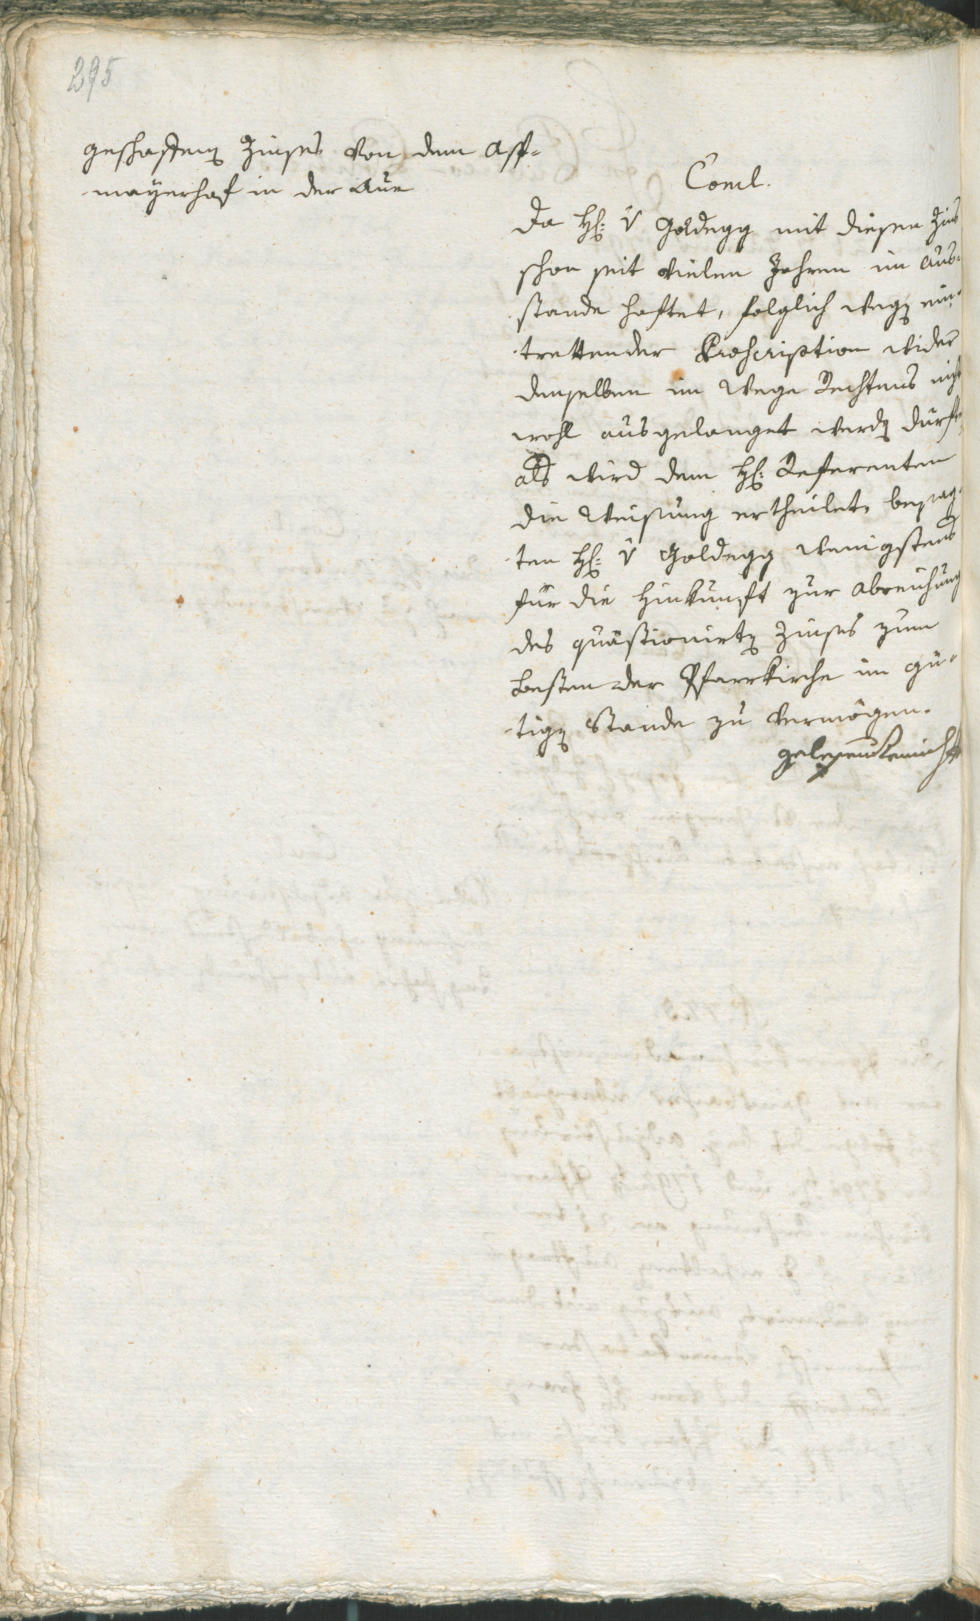 295
geschafften Zinses von dem Aff-
mayerhof in der Aue
Concl.
Da H: v Goldegg mit diesen Zins
schon seit vielen Jahren im Aus-
stande haftet, folglich wegen ein-
trettender Proscription wider
denselben im Wege Rechtens nicht
wohl ausgelanget werden durfte
als wird dem H: Referenten
die Weisung ertheilet, besag-
ten H: v Goldegg wenigstens
für die Hinkunft zur Abreichung
des quästionirten Zinses zum
Besten der Pfarrkirche im gü-
tigen Stande zu vermögen.